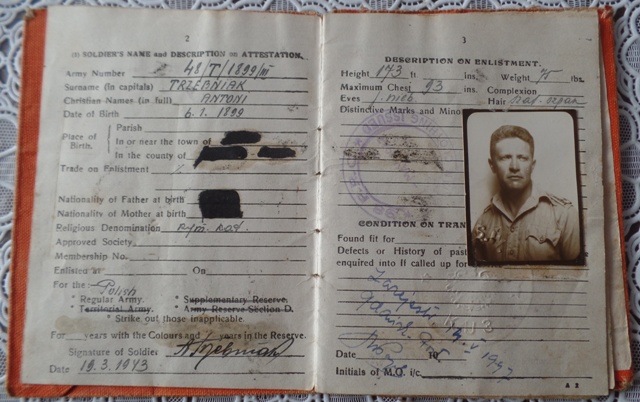 2
(1) SOLDIER'S NAME and DESCRIPTION on ATTESTATION.
Army Number 48/T/1899/III
Surname (in capitals) TRZEBNIAK
Christian Names (in full) ANTONI
Date of Birth 6.1.1899
Place of Birth.
Parish
In or near the town of
In the county of
Trade on Enlistment
Nationality of Father at birth
Nationality of Mother at birth
Religious Denomination Rym. Kat.
Approved Society
Membership No.
Enlisted at On
For the:- Polish
* Regular Army. * Supplementary Reserve.
* Territorial Army. * Army Reserve Section D.
* Strike out those inapplicable.
For years with the Colours and years in the Reserve.
Signature of Soldier
Date 19.3.1943
3
DESCRIPTION ON ENLISTMENT.
Height 173 ft ins. Weight lbs.
Maximum Chest 93 ins. Complexion
Eyes nieb. Hair
Distinctive Marks and Minor
CONDITION ON TRAN
Found fit for
Defects or History of past
enquired into if called up for
Date 19
Initials of M.O. i/c
A 2